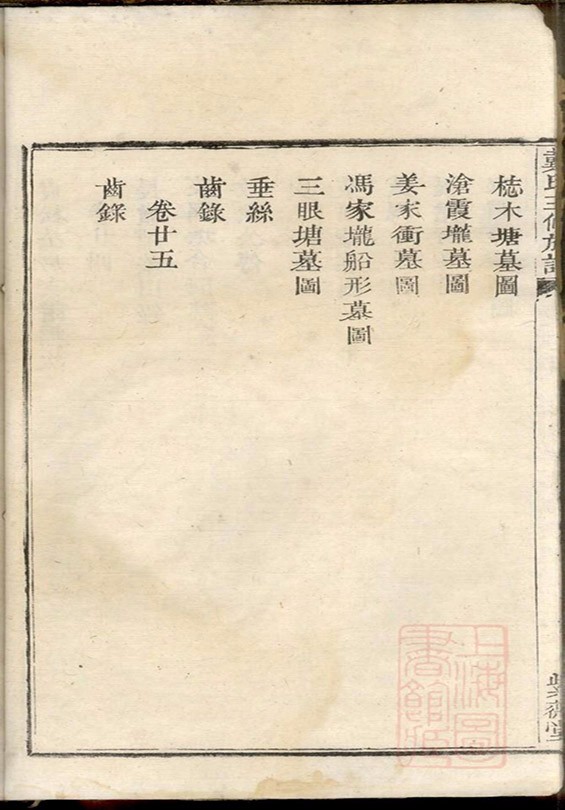 氏三修族譜
梽木塘墓圖
滄霞壠墓圖
姜家衝墓圖
馮家壠船形墓圖
三眼塘墓圖
垂絲
齒錄
卷廿五
齒錄
上海圖書館藏